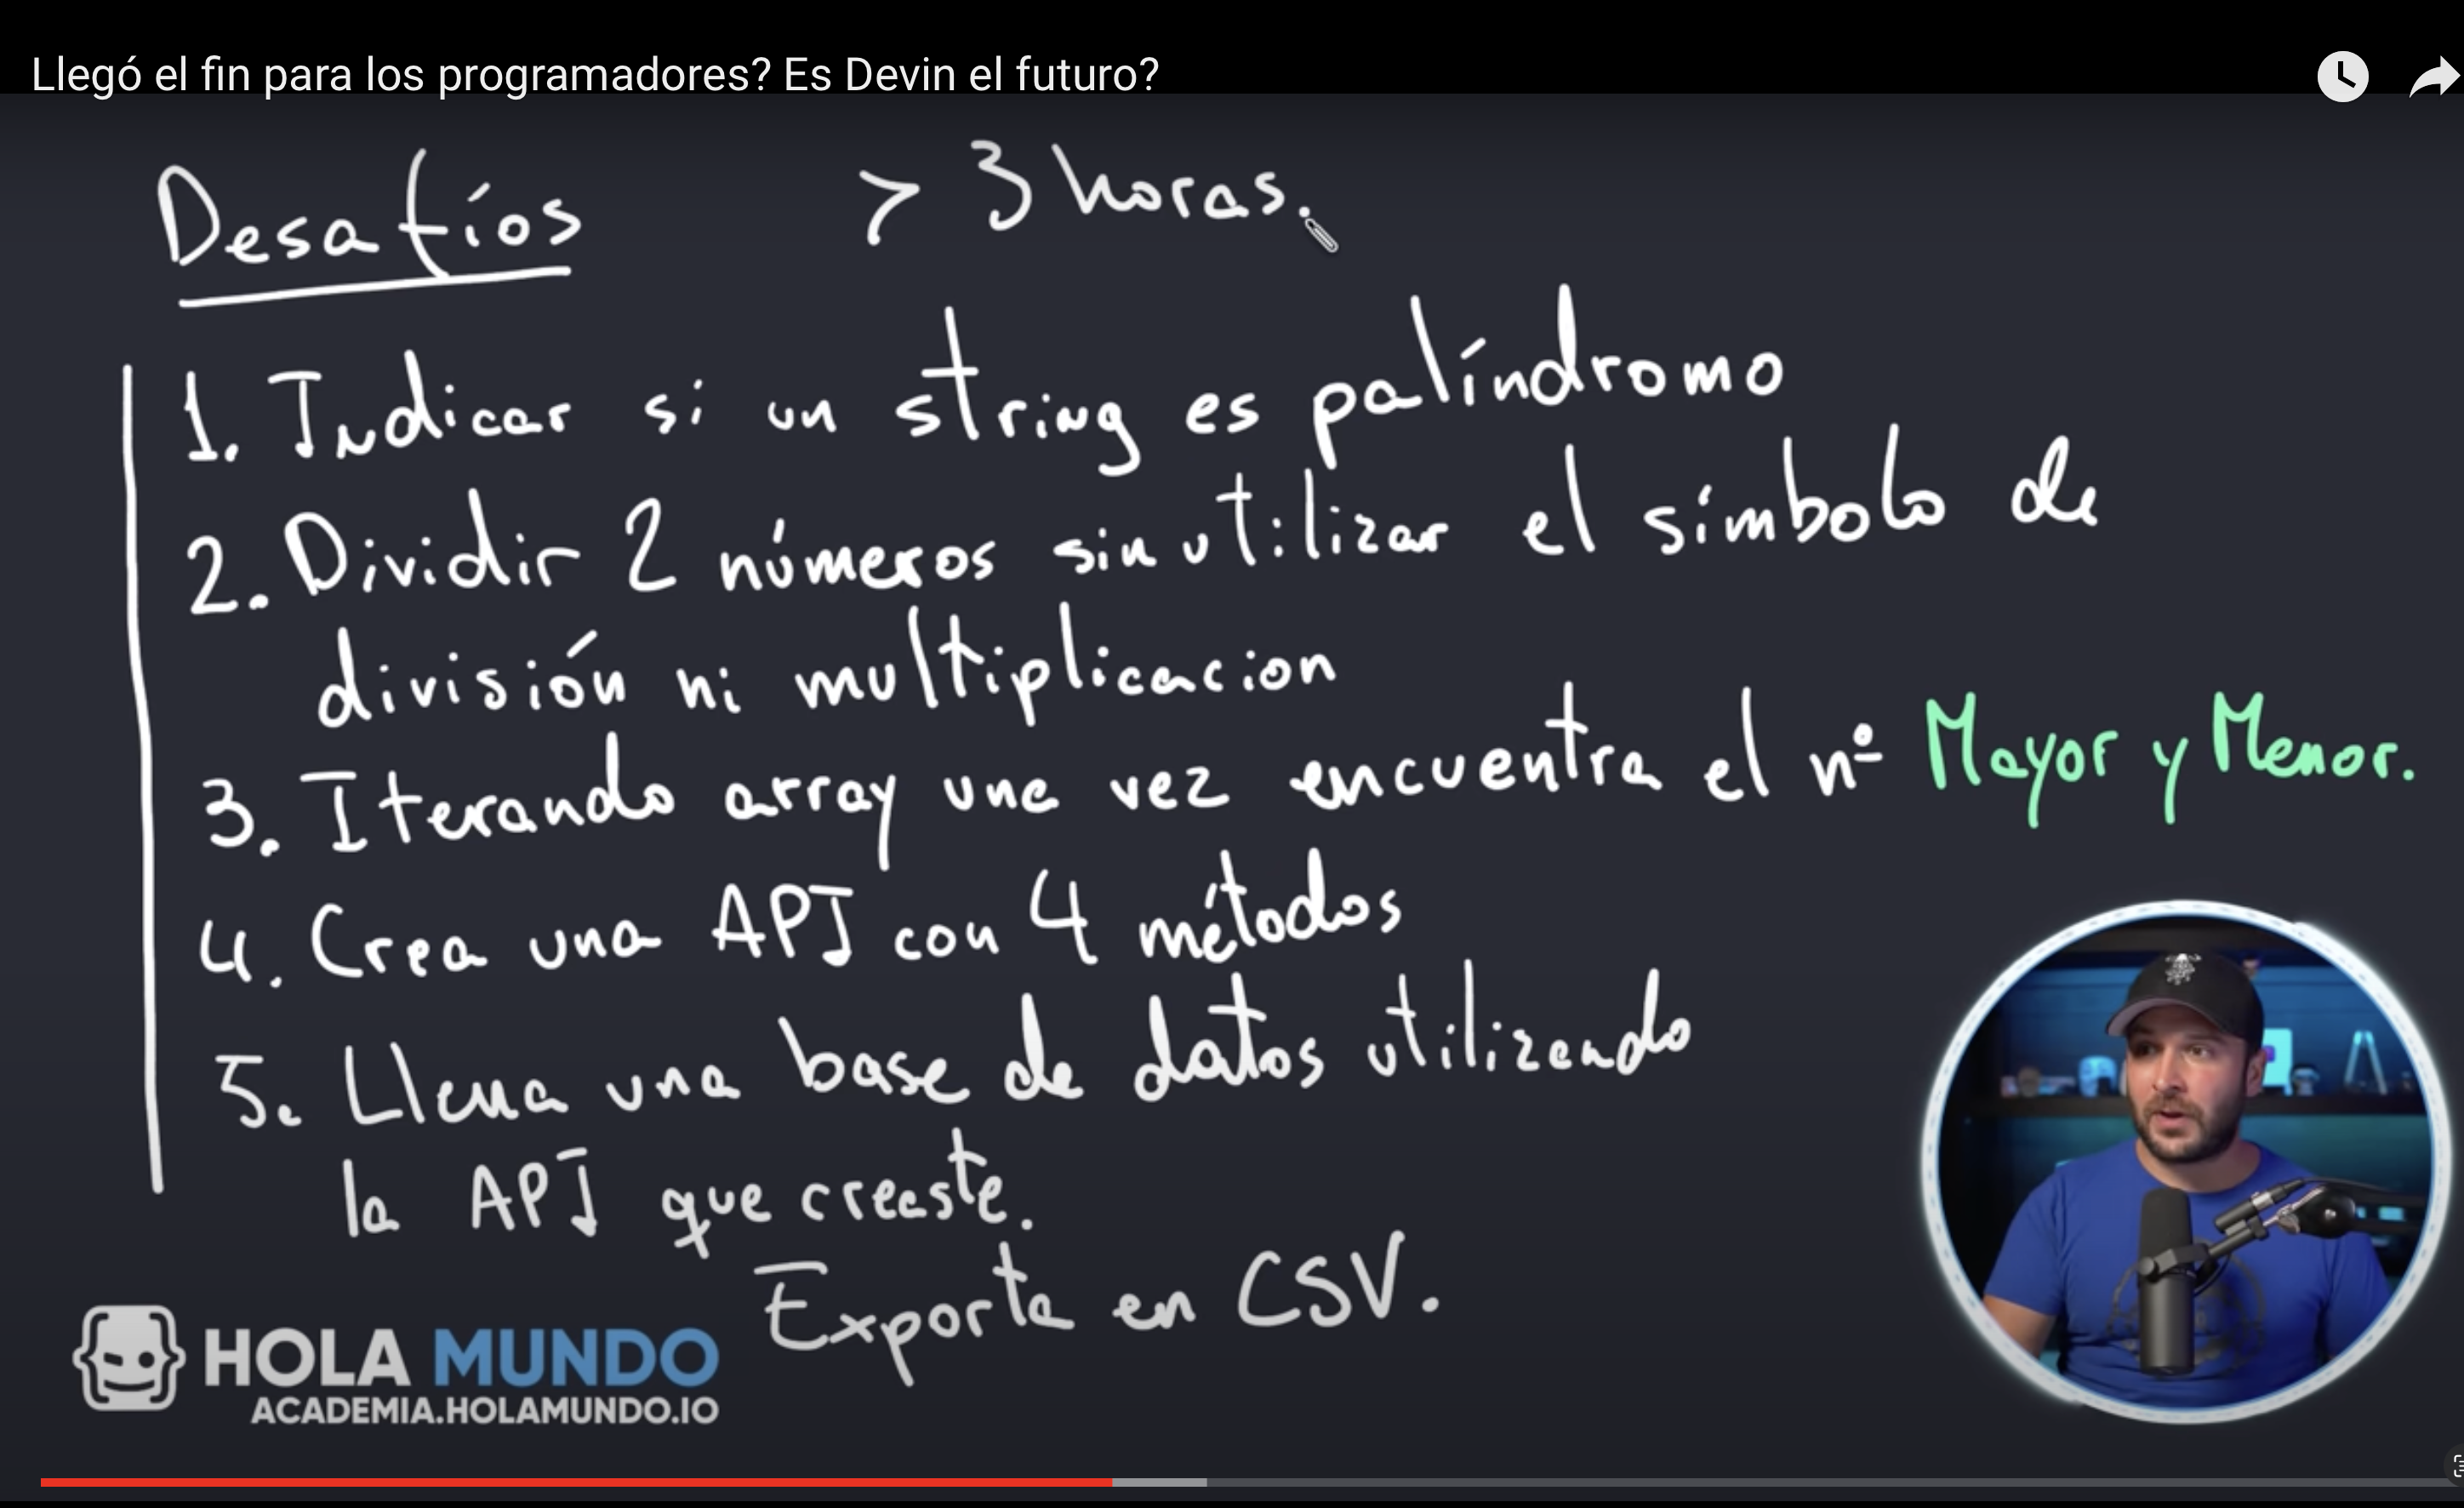 Llegó el fin para los programadores? Es Devin el futuro?
Desafíos > 3 horas.
1. Indicar si un string es palíndromo
2. Dividir 2 números sin utilizar el símbolo de
división ni multiplicacion
3. Iterando array una vez encuentra el nº Mayor y Menor.
4. Crea una API con 4 métodos
5. Llena una base de datos utilizando
la API que creaste.
Exporta en CSV.
HOLA MUNDO
ACADEMIA.HOLAMUNDO.IO